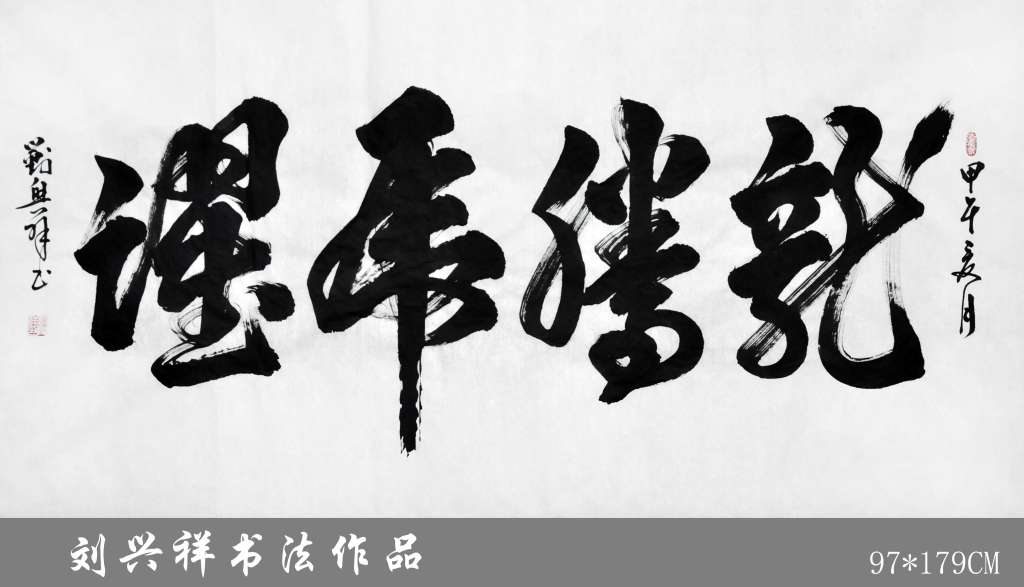 甲午夏月
龍騰虎躍
劉興祥书
刘兴祥书法作品
97*179CM